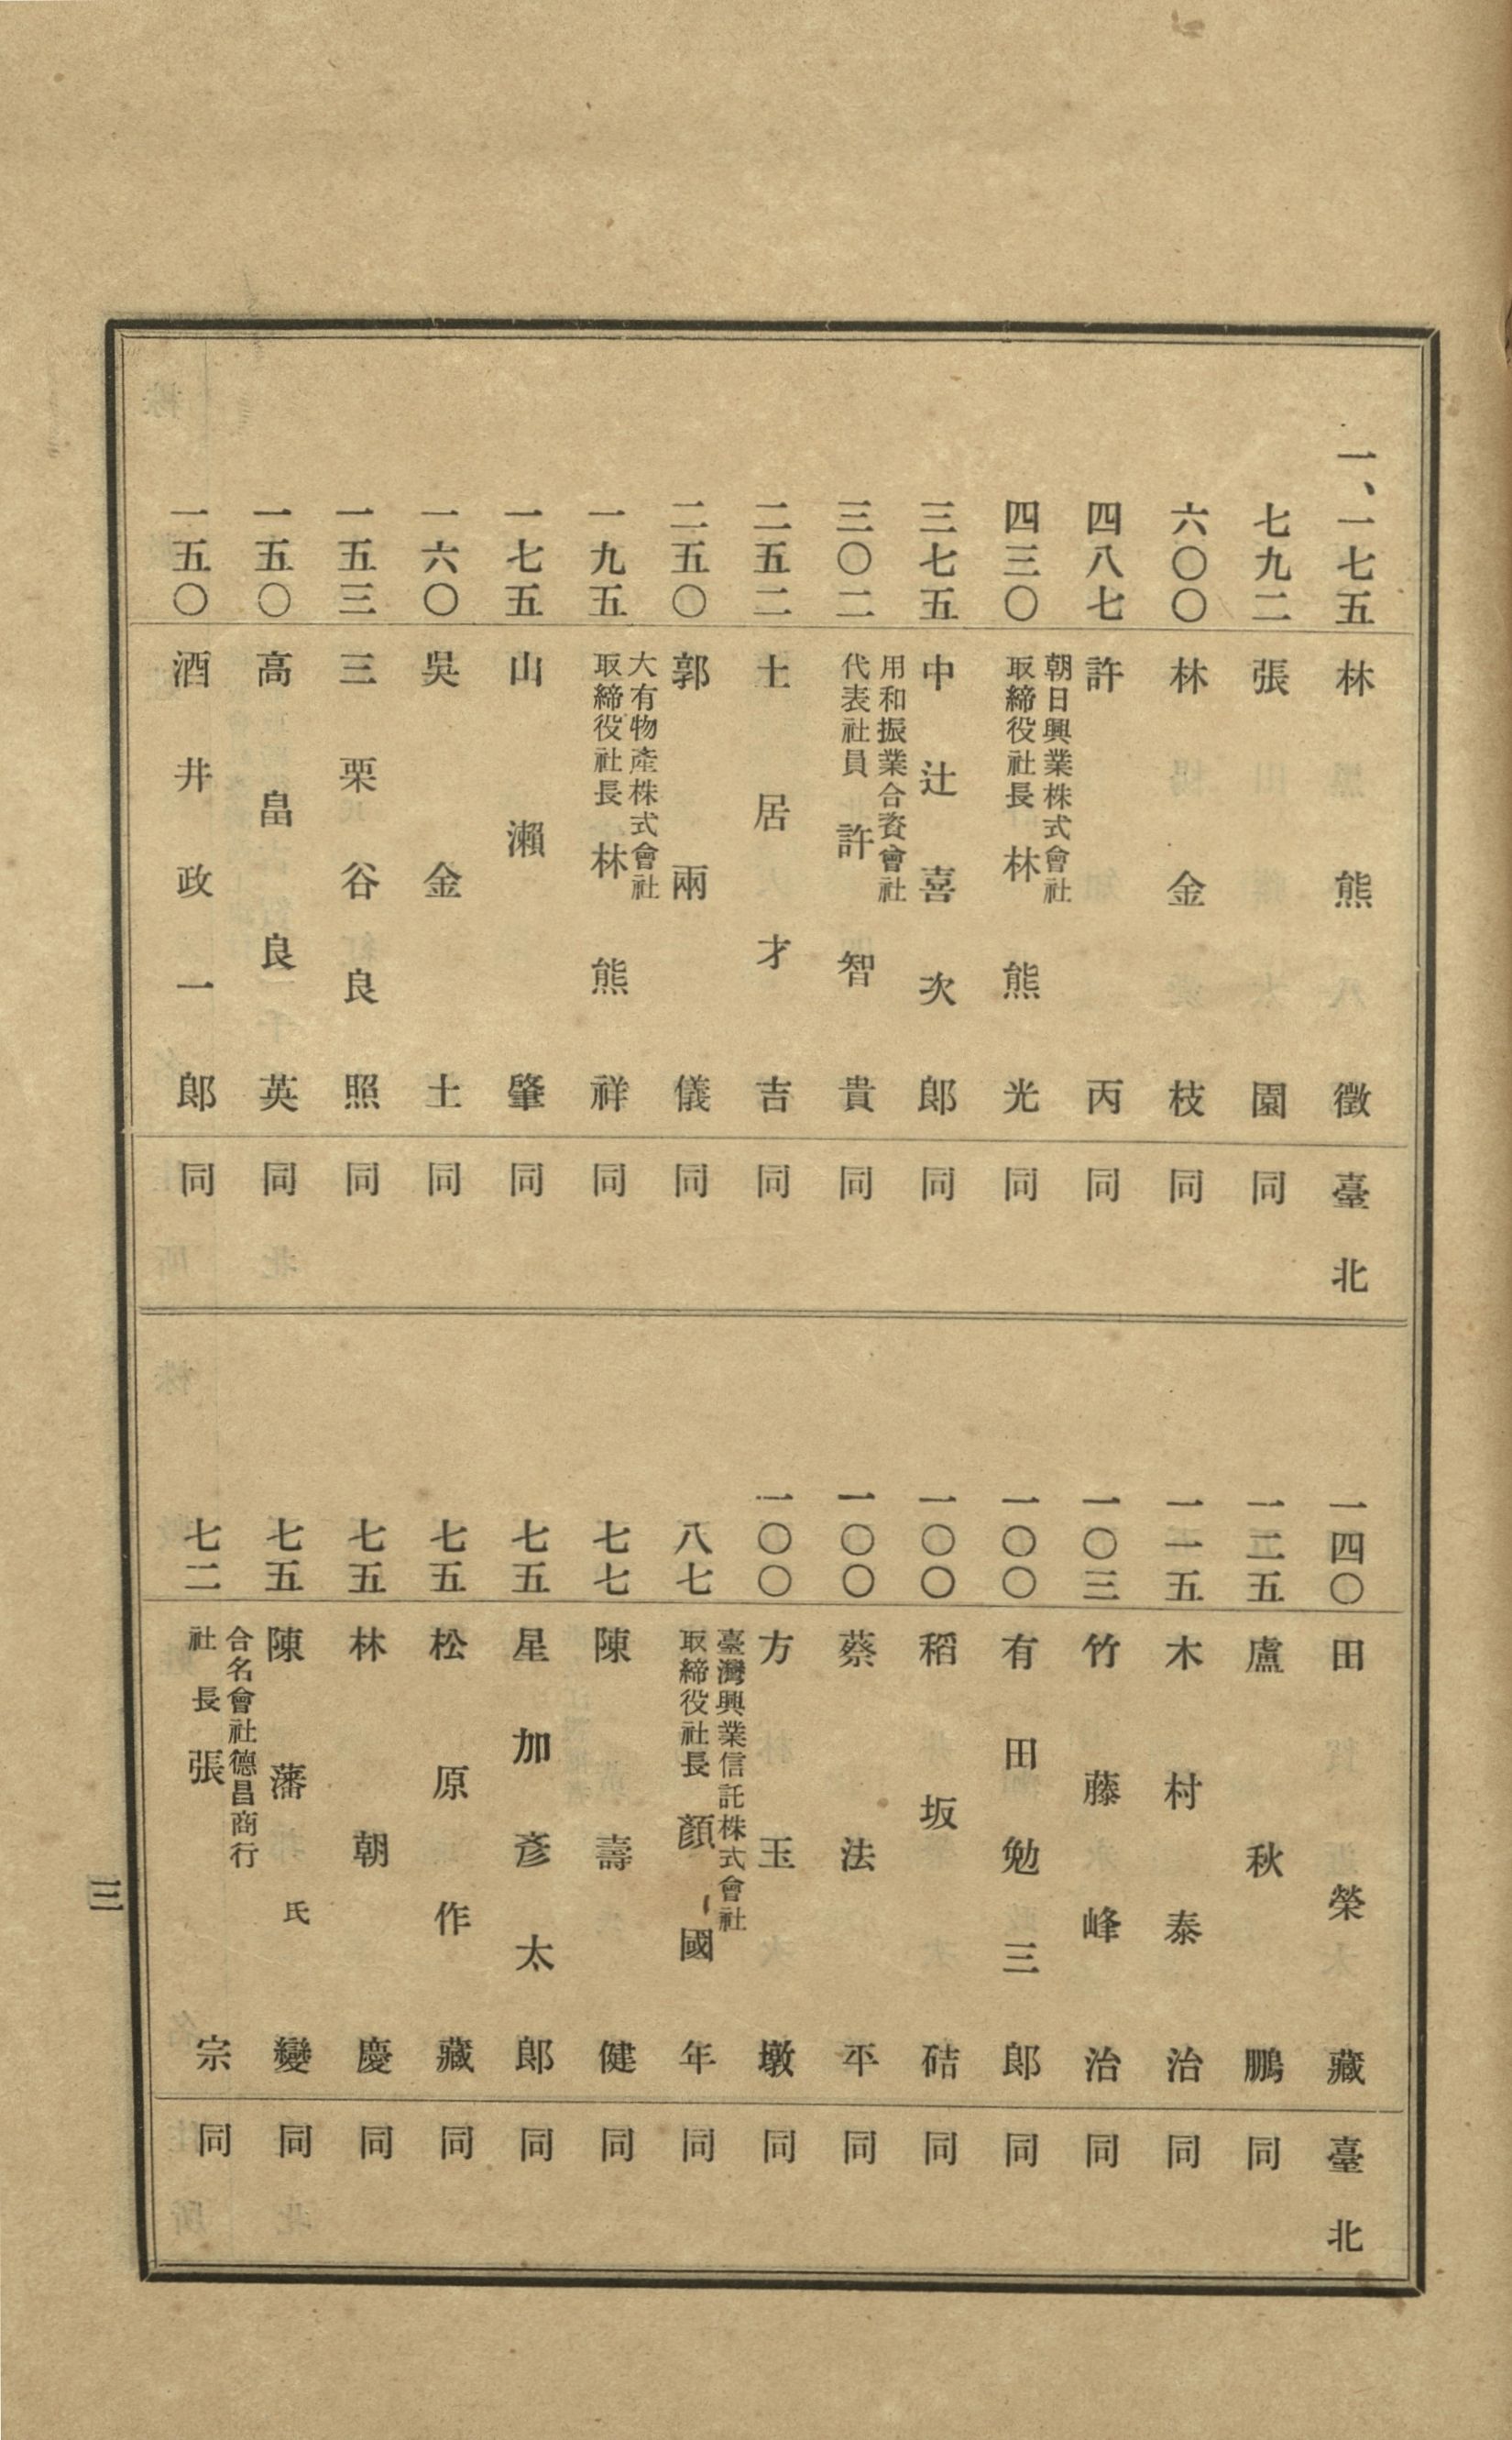 一、一七五 林熊徵 臺北
七九二 張園 同
六〇〇 林金枝 同
四八七 許丙 同
四三〇 朝日興業株式會社 取締役社長 林熊光 同
三七五 中辻喜次郎 同
三〇二 用和振業合資會社 代表社員 許智貴 同
二五二 土居才吉 同
二五〇 郭兩儀 同
一九五 大有物產株式會社 取締役社長 林熊祥 同
一七五 山瀨肇 同
一六〇 吳金土 同
一五三 三栗谷良照 同
一五〇 高畠良英 同
一五〇 酒井政一郎 同
一四〇 田榮藏 臺北
一二五 盧秋鵬 同
一一五 木村泰治 同
一〇三 竹藤峰治 同
一〇〇 有田勉三郎 同
一〇〇 稻坂硈 同
一〇〇 蔡法平 同
一〇〇 方玉墩 同
八七 臺灣興業信託株式會社 取締役社長 顏國年 同
七七 陳壽健 同
七五 星加彥太郎 同
七五 松原作藏 同
七五 林朝慶 同
七五 陳藩氏變 同
七二 合名會社德昌商行 社長 張宗 同
三